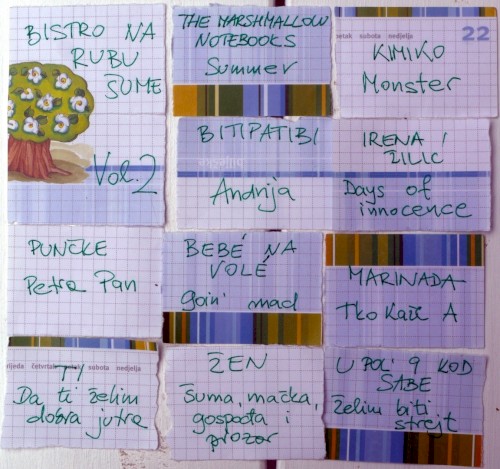 BISTRO NA
RUBU
ŠUME
Vol. 2
THE MARSHMALLOW
NOTEBOOKS
Summer
petak subota nedjelja
22
KIMIKO
Monster
BITIPATIBI
Andrija
bilješke
IRENA
ŽILIĆ
Days of
innocence
PUNČKE
Petra Pan
BEBÉ NA
VOLÉ
goin' mad
MARINADA
Tko kaže A
srijeda četvrtak petak subota nedjelja
TI
Da ti želim
dobra jutra
ŽEN
Šuma, mačka,
gospođa i
prozor
U POL' 9 KOD
SABE
želim biti
strejt